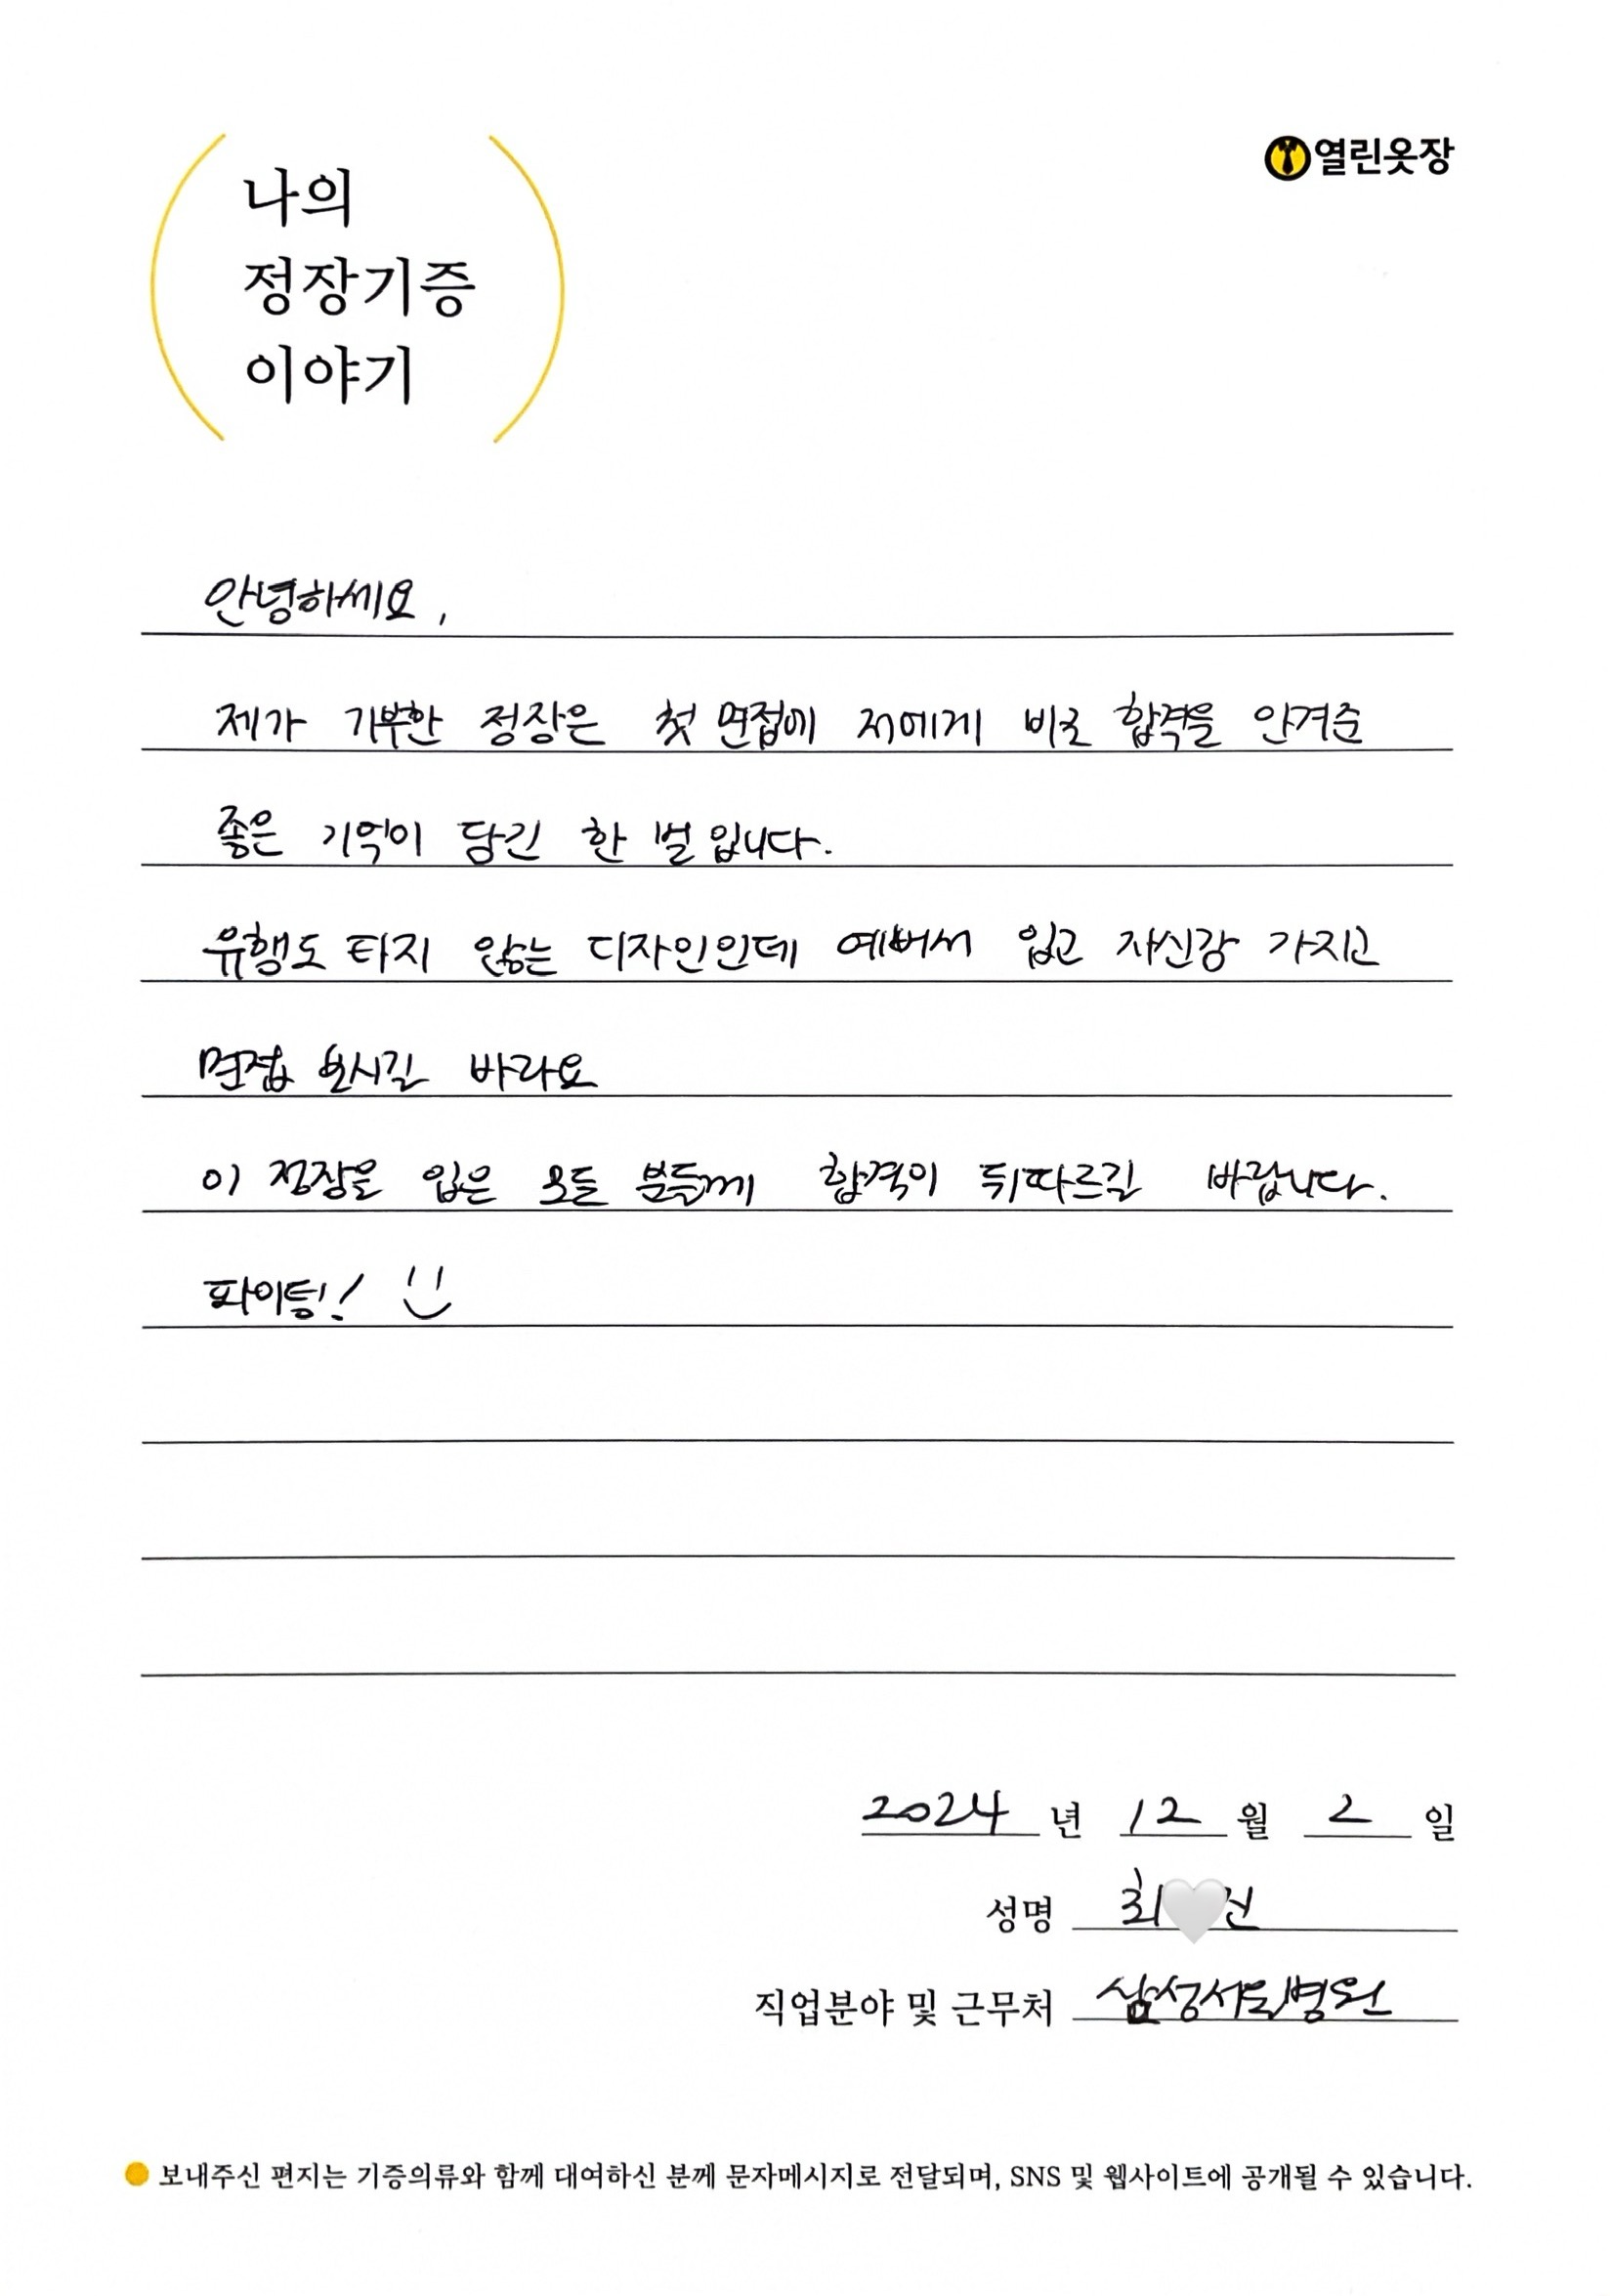 열린옷장
나의
정장기증
이야기
안녕하세요,
제가 기부한 정장은 첫 면접에 저에게 바로 합격을 안겨준
좋은 기억이 담긴 한 벌입니다.
유행도 타지 않는 디자인인데 예뻐서 입고 자신감 가지고
면접 보시길 바라요
이 정장을 입은 모든 분들께 합격이 뒤따르길 바랍니다.
파이팅!
2024 년 12 월 2 일
성명 최 건
직업분야 및 근무처 삼성서울병원
보내주신 편지는 기증의류와 함께 대여하신 분께 문자메시지로 전달되며, SNS 및 웹사이트에 공개될 수 있습니다.